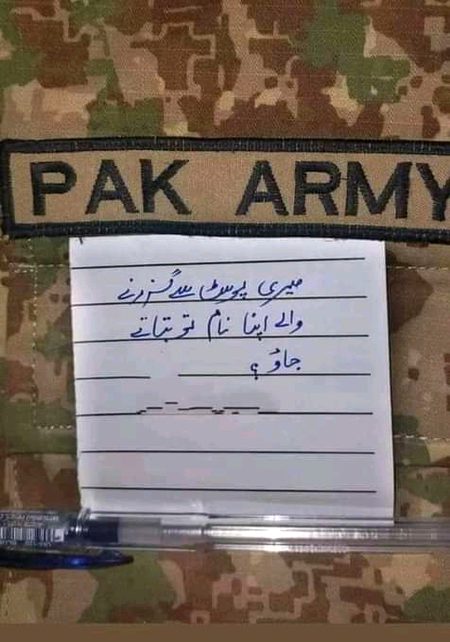 PAK ARMY
میری پوسٹ سے گزرنے
والے اپنا نام تو بتاتے
جاؤ ؟